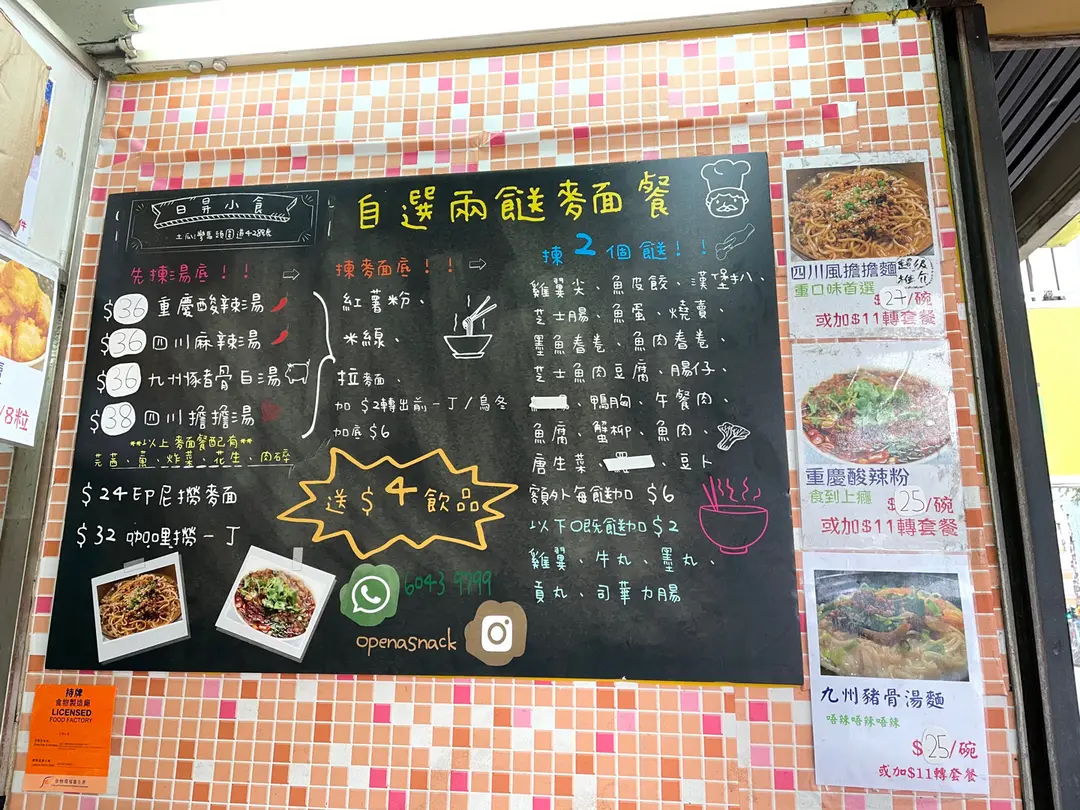 日昇小食
自選兩餸麥面餐
先揀湯底！！
$36 重慶酸辣湯
$36 四川麻辣湯
$36 九州豚骨白湯
$38 四川擔擔湯
**以上麥面餐配有**
芫茜、蔥、炸菜、花生、肉碎
$24 印尼撈麥面
$32 咖喱撈一丁
揀麥面底！！
紅薯粉、
米線、
拉麵、
加 $2轉出前一丁/烏冬
加底 $6
送 $4 飲品
6043 9799
openasnack
揀2個餸！！
雞翼尖、魚皮餃、漢堡扒、
芝士腸、魚蛋、燒賣、
墨魚春卷、魚肉春卷、
芝士魚肉豆腐、腸仔、
鴨胸、午餐肉、
魚腐、蟹柳、魚肉、
唐生菜、豆卜
額外每餸加 $6
以下嘅餸加 $2
雞翼、牛丸、墨丸、
貢丸、司華力腸
四川風擔擔麵 超級推介
重口味首選
$27/碗
或加$11轉套餐
重慶酸辣粉
食到上癮
$25/碗
或加$11轉套餐
九州豬骨湯麵
唔辣唔辣唔辣
$25/碗
或加$11轉套餐
/8粒
持牌
食物製造廠
LICENSED
FOOD FACTORY